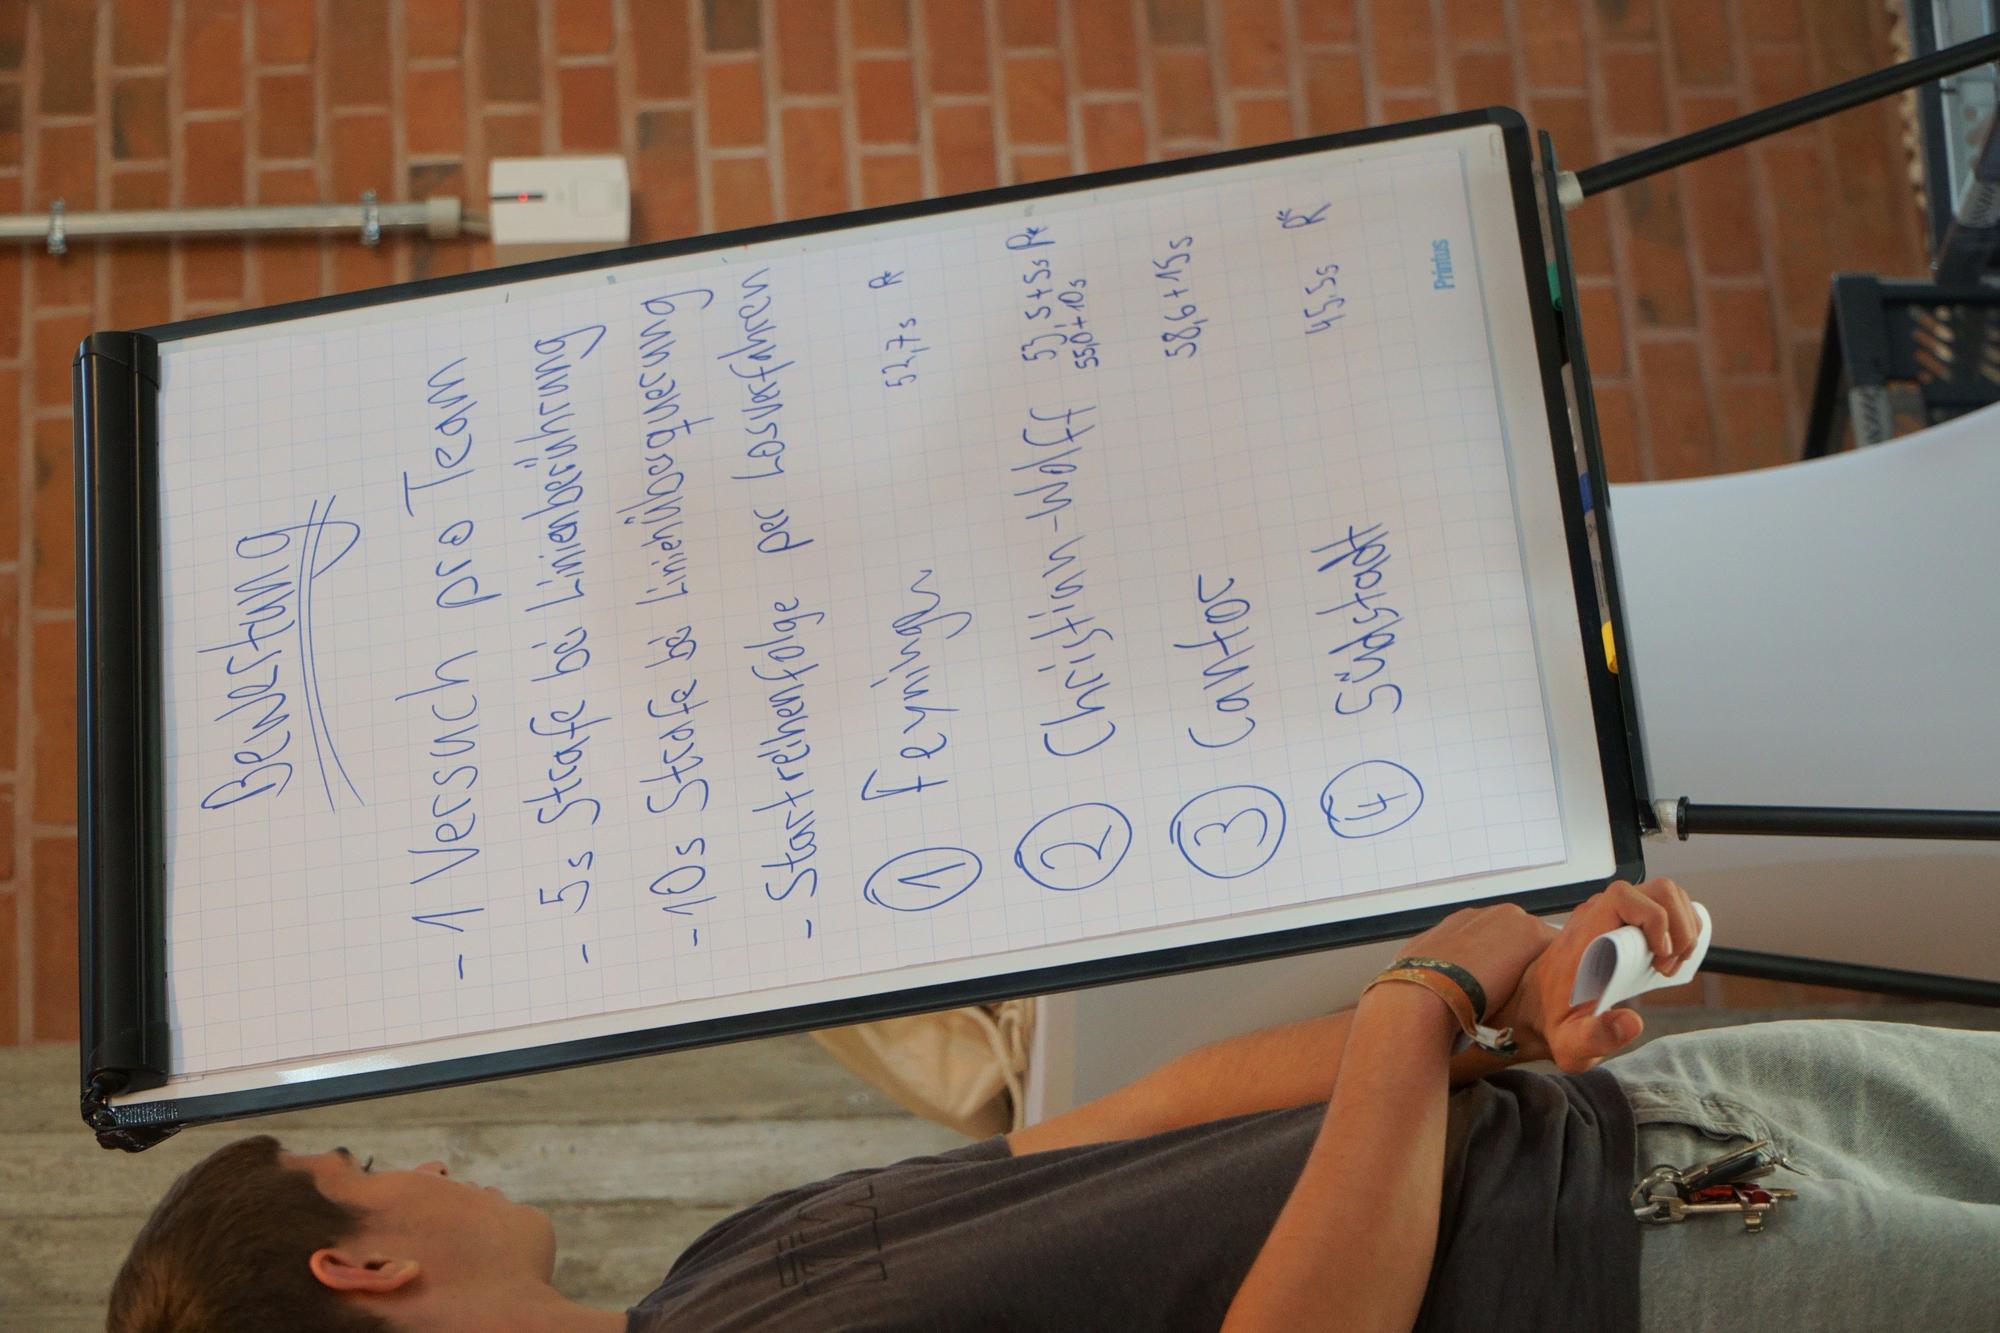 Bewertung
- 1 Versuch pro Team
- 5s Strafe bei Linienberührung
- 10s Strafe bei Linienüberquerung
- Startreihenfolge per Losverfahren
1 Feyninger 52,7s
2 Christian-Wolff 53,5+5s
55,0+10s
3 Cantor 58,6+15s
4 Südstadt 45,5s
Printus